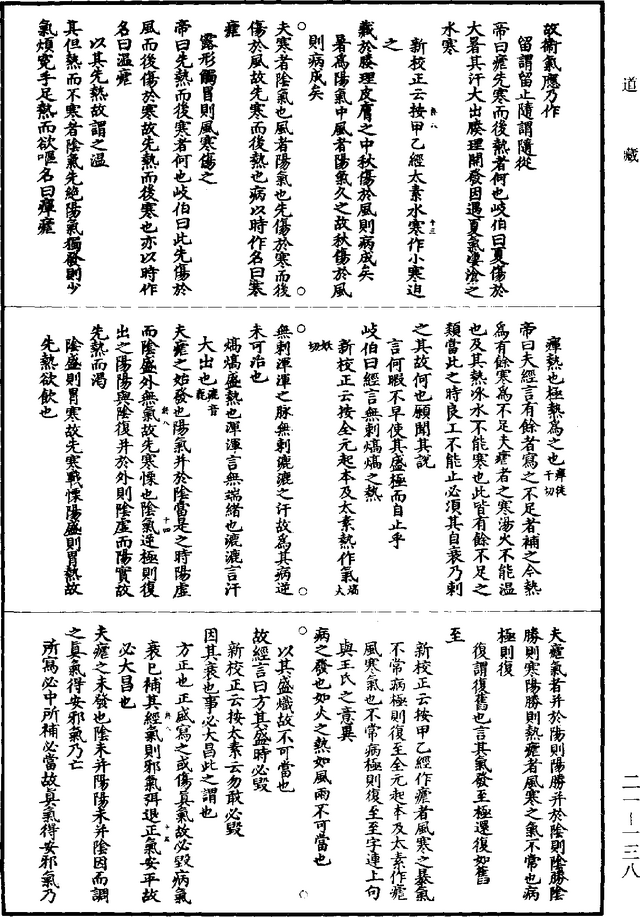 道藏
故衛氣應乃作
留謂留止隨謂隨從
帝曰瘧先寒而後熱者何也岐伯曰夏傷於
大暑其汗大出腠理開發因遇夏氣淒滄之
水寒
新校正云按甲乙經太素水寒作小寒迫
之
藏於腠理皮膚之中秋傷於風則病成矣
暑爲陽氣中風者陽氣久之故秋傷於風
則病成矣
夫寒者陰氣也風者陽氣也先傷於寒而後
傷於風故先寒而後熱也病以時作名曰寒
瘧
露形觸冒則風寒傷之
帝曰先熱而後寒者何也岐伯曰此先傷於
風而後傷於寒故先熱而後寒也亦以時作
名曰溫瘧
以其先熱故謂之溫
其但熱而不寒者陰氣先絕陽氣獨發則少
氣煩冤手足熱而欲嘔名曰癉瘧
癉熱也極熱爲之也癉徒干切
帝曰夫經言有餘者寫之不足者補之今熱
爲有餘寒爲不足夫瘧者之寒湯火不能溫
也及其熱冰水不能寒也此皆有餘不足之
類當此之時良工不能止必須其自衰乃刺
之其故何也願聞其說
言何暇不早使其盛極而自止乎
岐伯曰經言無刺熇熇之熱
新校正云按全元起本及太素熱作氣熇火
沃切
無刺渾渾之脉無刺漉漉之汗故爲其病逆
未可治也
熇熇盛熱也渾渾言無端緒也漉漉言汗
大出也漉音鹿
夫瘧之始發也陽氣并於陰當是之時陽虛
而陰盛外無氣故先寒慄也陰氣逆極則復
出之陽陽與陰復并於外則陰虛而陽實故
先熱而渴
陰盛則胃寒故先寒戰慄陽盛則胃熱故
先熱欲飲也
夫瘧氣者并於陽則陽勝并於陰則陰勝陰
勝則寒陽勝則熱瘧者風寒之氣不常也病
極則復
復謂復舊也言其氣發至極還復如舊
至
新校正云按甲乙經作瘧者風寒之暴氣
不常病極則復至全元起本及太素作瘧
風寒氣也不常病極則復至至字連上句
與王氏之意異
病之發也如火之熱如風雨不可當也
以其盛熾故不可當也
故經言曰方其盛時必毀
新校正云按太素云勿敢必毀
因其衰也事必大昌此之謂也
方正也正盛寫之或傷真氣故必毀病氣
衰已補其經氣則邪氣弭退正氣安平故
必大昌也
夫瘧之未發也陰未并陽陽未并陰因而調
之真氣得安邪氣乃亡
所寫必中所補必當故真氣得安邪氣乃
二一—一三八